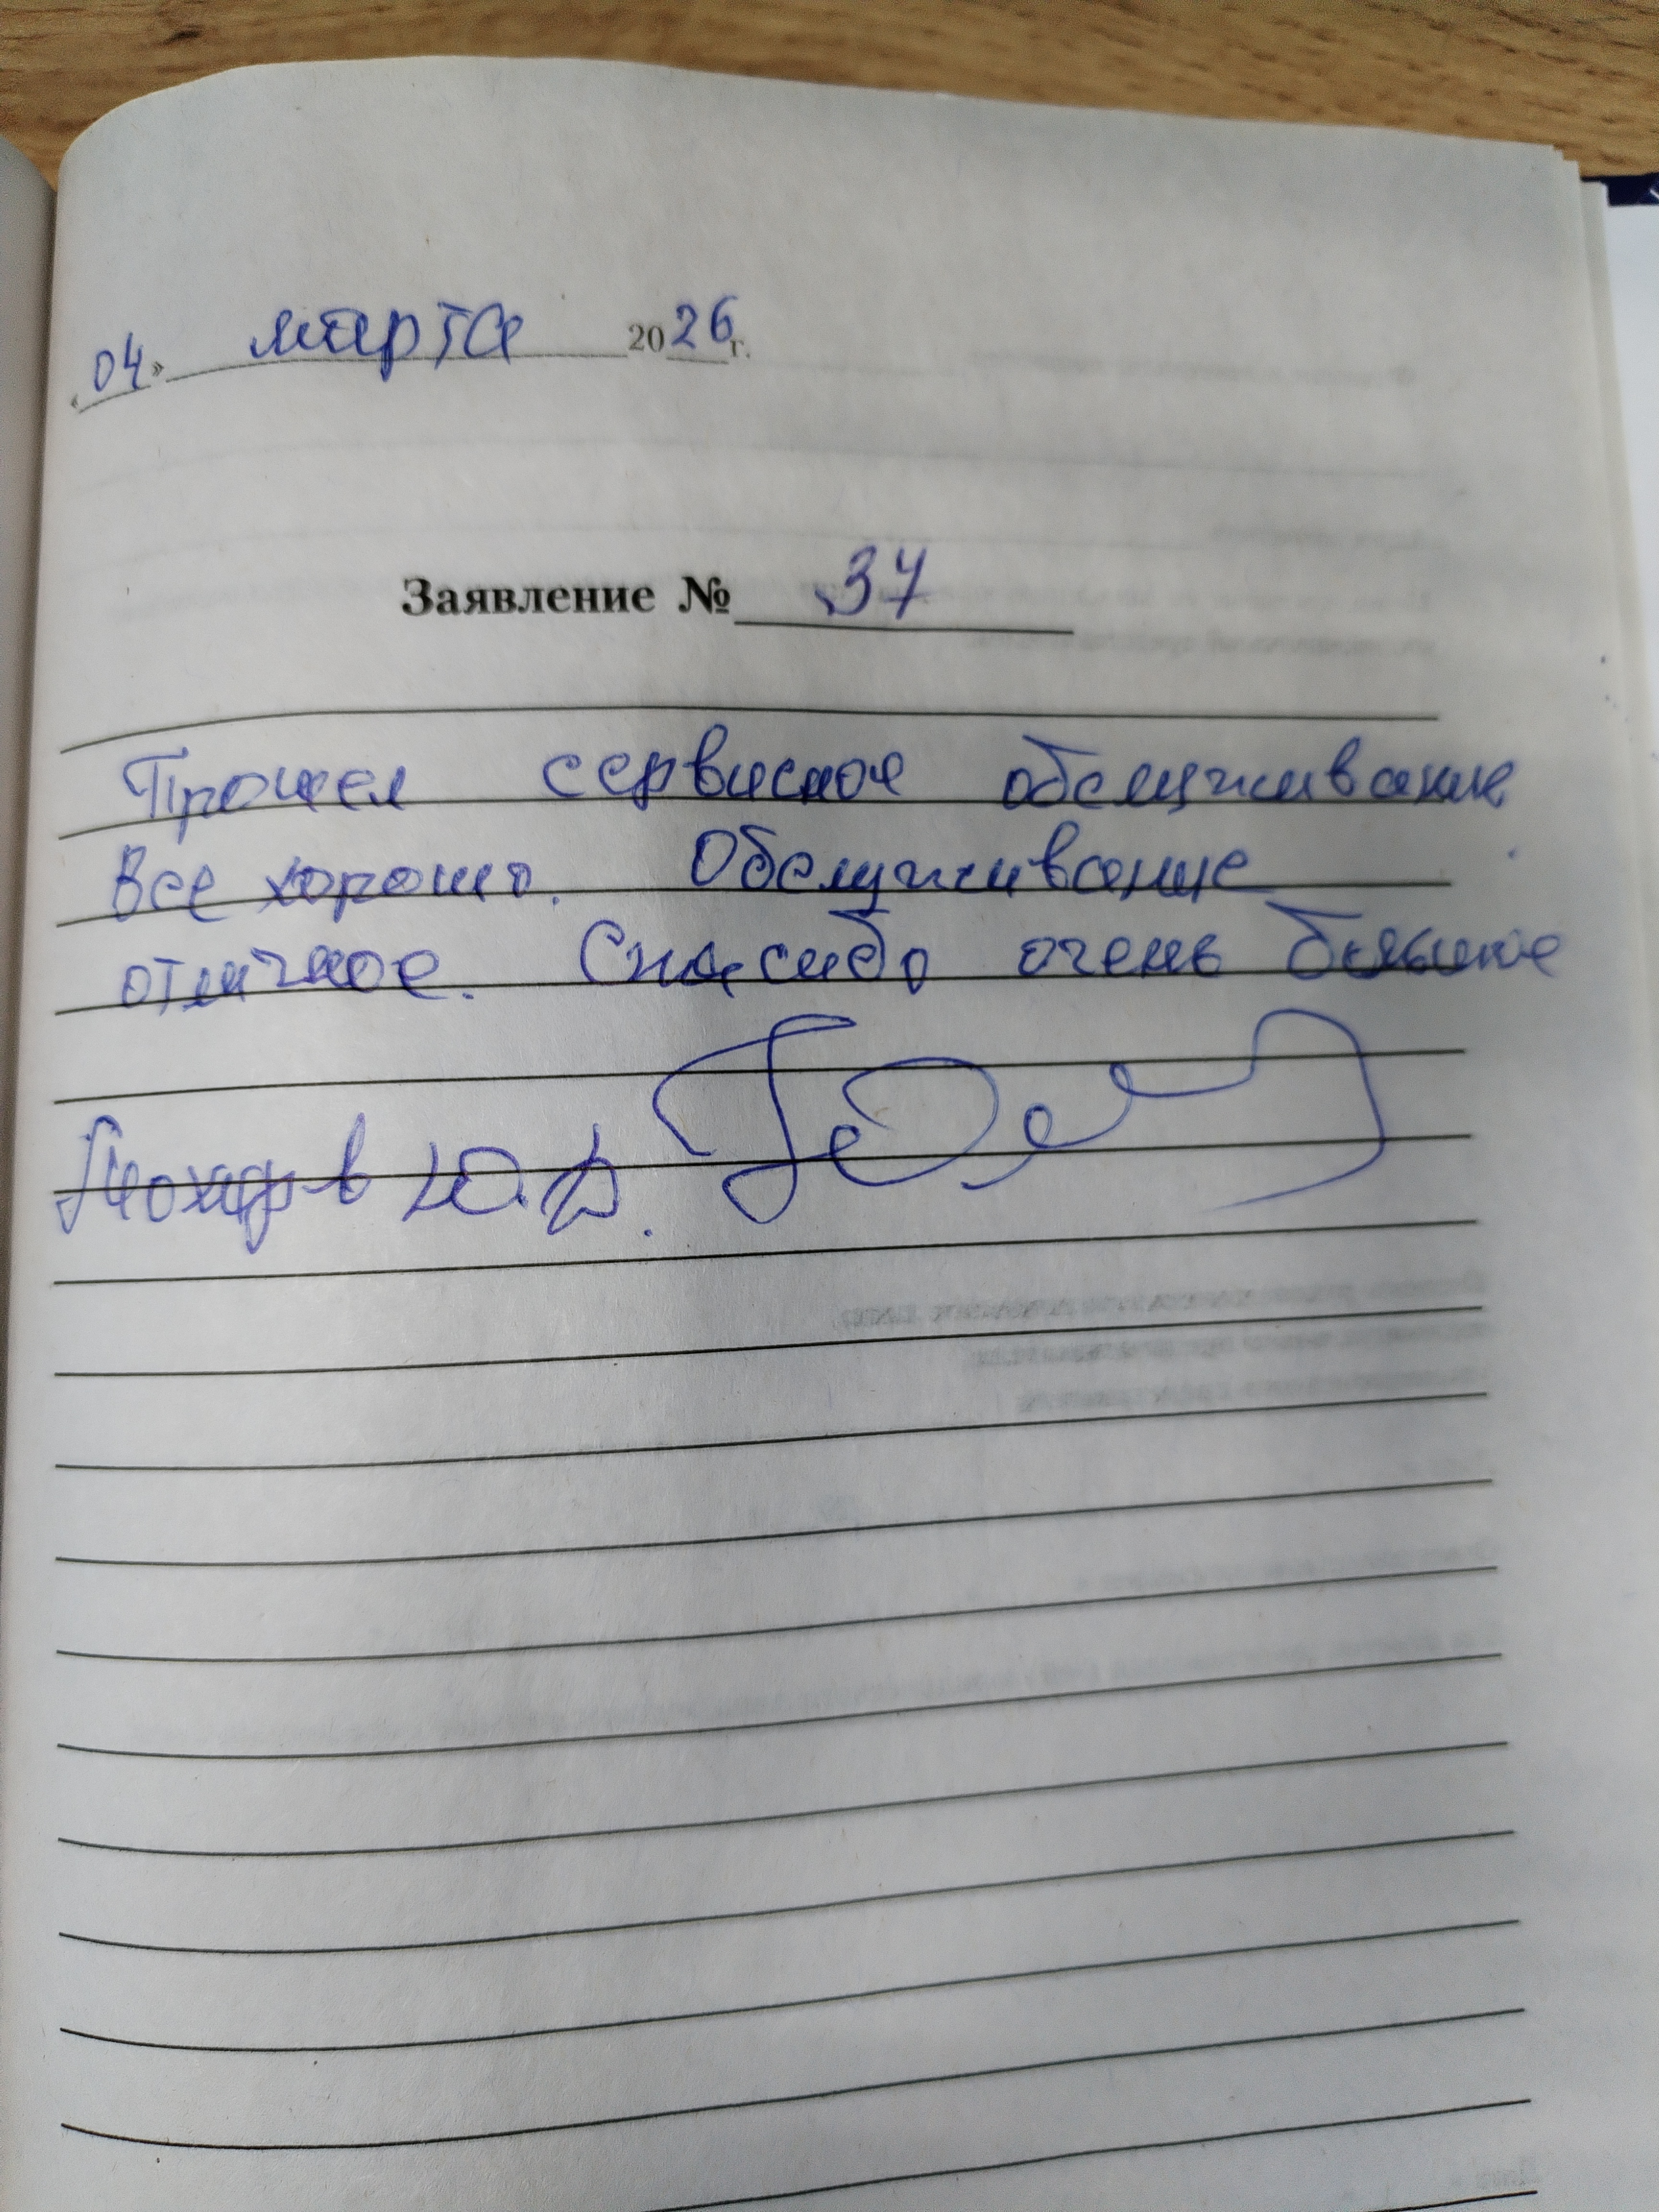 «04» марта 2026 г.
Заявление № 37
Прошел сервисное обслуживание
Все хорошо. Обслуживание
отличное. Спасибо очень большое
Ю.В.